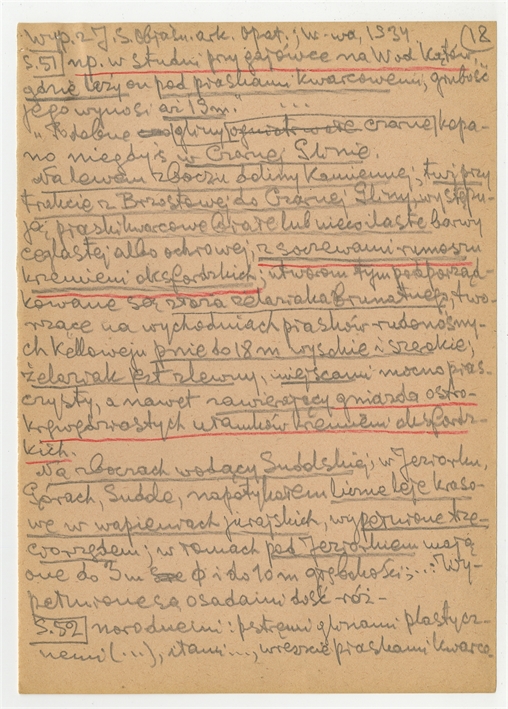 Wyp. z J. S. Objaśn. ark. Opat.; W-wa, 1934. (18
S.51 np. w studni przy gajówce na Wod Kątów,
gdzie leży on pod piaskami kwarcowemi, grubość
jego wynosi aż 13 m." ...
"Podobne gliny ogniotrwałe czarnej kopa-
no niegdyś w Czarnej Glinie.
Na lewem zboczu doliny Kamiennej, tuż przy
trakcie z Brzostowej do Czarnej Gliny, występu-
ją piaski kwarcowe białe lub nieco ilaste barwy
ceglastej albo ochrowej z soczewami rumoszu
krzemieni oksfordzkich; utworom tym podporząd-
kowane są złoża żelaziaka brunatnego, two-
rzące na wychodniach piasków rudonośny-
ch Keloweju pnie do 18 m wysokie i szerokie;
żelaziak jest zlewny, miejscami mocno pias-
czysty, a nawet zawierający gniazda ostro-
krawędziastych ułamków krzemieni oksfordz-
kich.
Na zboczach wodącej Suddskiej, w Jeziorku,
Górach, Suddle, napotykałem liczne leje kraso-
we w wapieniach jurajskich, wypełnione trze-
ciorzędem; w łomach pod Jeziorkiem mają
one do 3 m φ i do 10 m głębokości; ... Wy-
pełnione są osadami dość róż-
S.52 norodnemi: pstremi glinami plastycz-
nemi (...), iłami ..., wreszcie piaskami kwarco